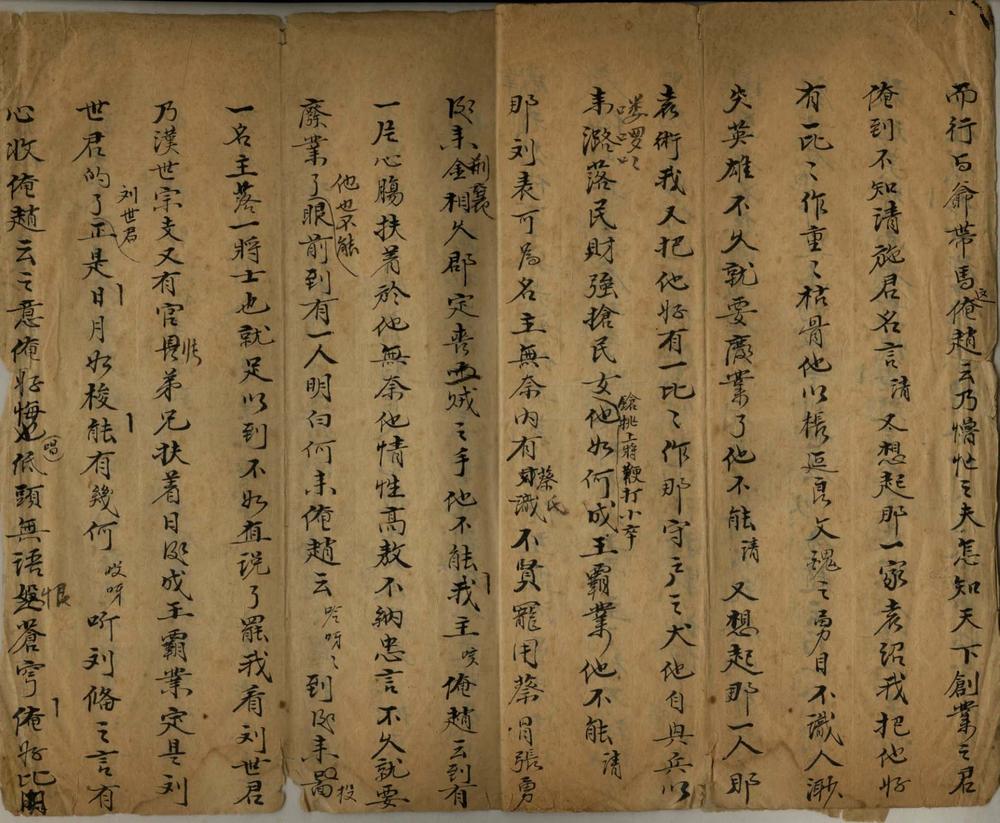 而行与爺帶馬返俺趙云乃懵忙之夫怎知天下創業之君
俺到不知請施君名言請又想起那一家袁紹我把他好
有一比比作重重枯骨他以根延良文魂之勇目不識人渺
突英雄不久就要廢業了他不能請又想起那一人那
袁術我又把他好有一比比作那守户之犬他自興兵以
来嘍囉以潞落民財強搶民女他鎗挑上將鞭打小卒如何成王霸業他不能請
那刘表可為名主無奈内有蔡氏識不賢寵用蔡冒張勇
後来荆襄金相久郡定喪贼之手他不能我主咳俺趙云到有
一片心腸扶着於他無奈他情性高敖不納忠言不久就要
廢業了他也不能眼前到有一人明白何未俺趙云哈呀呀到後来投
一名主落一將士也就足以到不如直説了罷我看刘世君
乃漢世宗支又有官張弟兄扶着日後成王霸業定是刘
世君的了刘世君正是日月如梭能有幾何哎呀听刘俻之言有
心收俺趙云之意俺好悔也唱低頭無語恨蒼穹俺好比